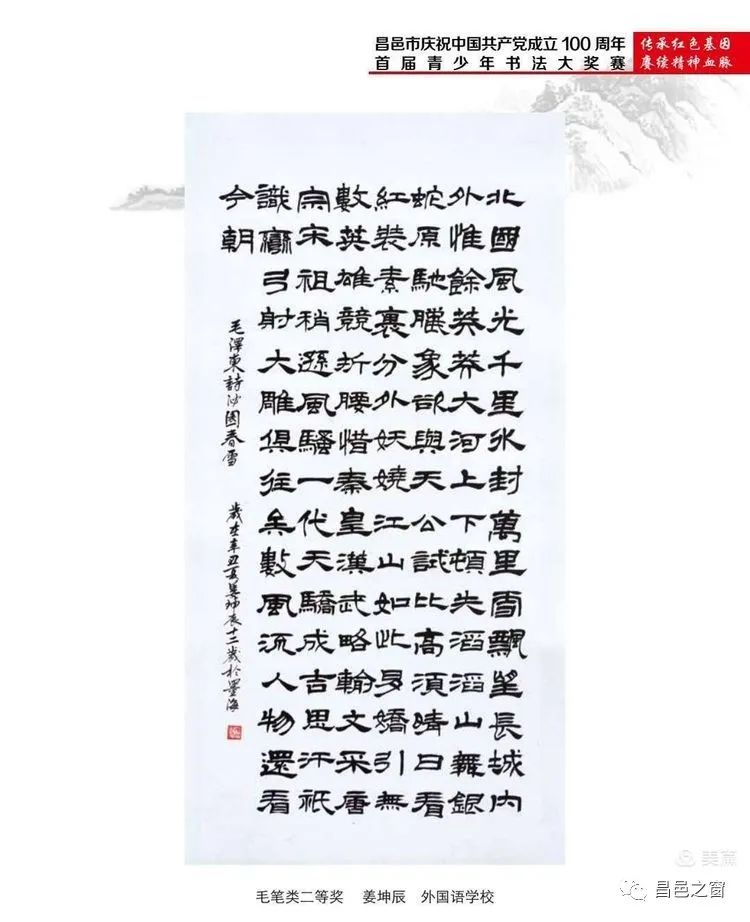 昌邑市庆祝中国共产党成立100周年
首届青少年书法大奖赛
传承红色基因
赓续精神血脉
北國風光千里冰封萬里雪飄望長城內
外惟餘莽莽大河上下頓失滔滔山舞銀
蛇原馳臘象欲與天公試比高須晴日看
紅裝素裹分外妖嬈江山如此多嬌引無
數英雄競折腰惜秦皇漢武略輸文采唐
宗宋祖稍遜風騷一代天驕成吉思汗祇
識彎弓射大雕俱往矣數風流人物還看
今朝
毛澤東詩沁園春雪 歲在辛丑夏姜坤辰十二歲於墨海
毛笔类二等奖 姜坤辰 外国语学校
美篇
昌邑之窗